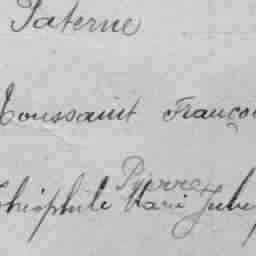 Paterne
Toussaint Franço
Pierre
Théophile Marie Jule